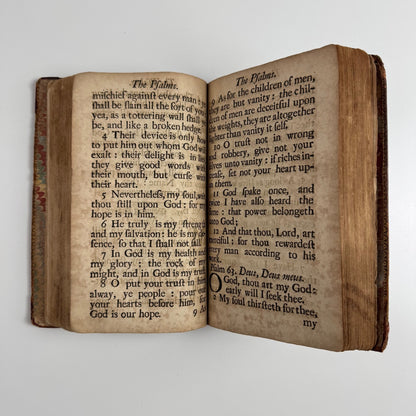 The Pſalms.
miſchief against every man : ye
ſhall be ſlain all the ſort of you
yea, as a tottering wall ſhall
be, and like a broken hedge.
4 Their device is only
to put him out whom God will
exalt : their delight is in
they give good words with
their mouth, but curſe with
their heart.
5 Nevertheleſs, my ſoul,
thou ſtill upon God : for my
hope is in him.
6 He truly is my ſtrength
and my ſalvation: he is my
fence, ſo that I ſhall not fall.
7 In God is my health and
my glory : the rock of my
might, and in God is my truſt.
8 O put your truſt in him
alway, ye people : pour out
your hearts before him, for
God is our hope.
9 As
The Pſalms.
9 As for the children of men,
they are but vanity : the chil-
dren of men are deceitful upon
the weights, they are altogether
lighter than vanity it ſelf.
10 O truſt not in wrong
and robbery, give not your
ſelves unto vanity : if riches in-
creaſe, ſet not your heart up-
on them.
11 God ſpake once, and
twice I have also heard the
ſame : that power belongeth
unto God;
12 And that thou, Lord, art
merciful : for thou rewardeſt
every man according to his
work.
Pſalm 63. Deus, Deus meus.
O God, thou art my God :
early will I ſeek thee.
2 My ſoul thirſteth for thee,
my